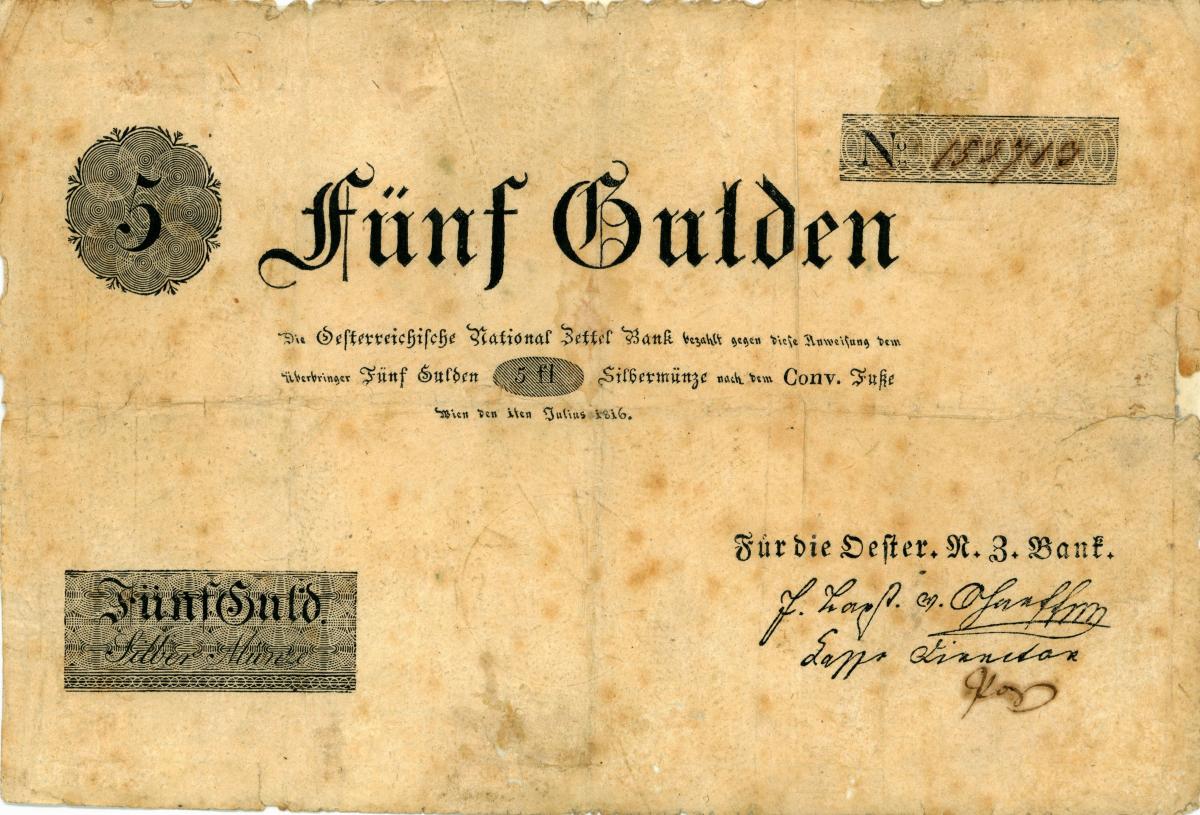 5
Nº
Fünf Gulden
Die Oesterreichische National Zettel Bank bezahlt gegen diese Anweisung dem
Überbringer Fünf Gulden 5 fl Silbermünze nach dem Conv. Fuße
Wien den 1ten Julius 1816.
Für die Oester. N. Z. Bank.
Fünf Guld.
Silber Münze
Cassa Director